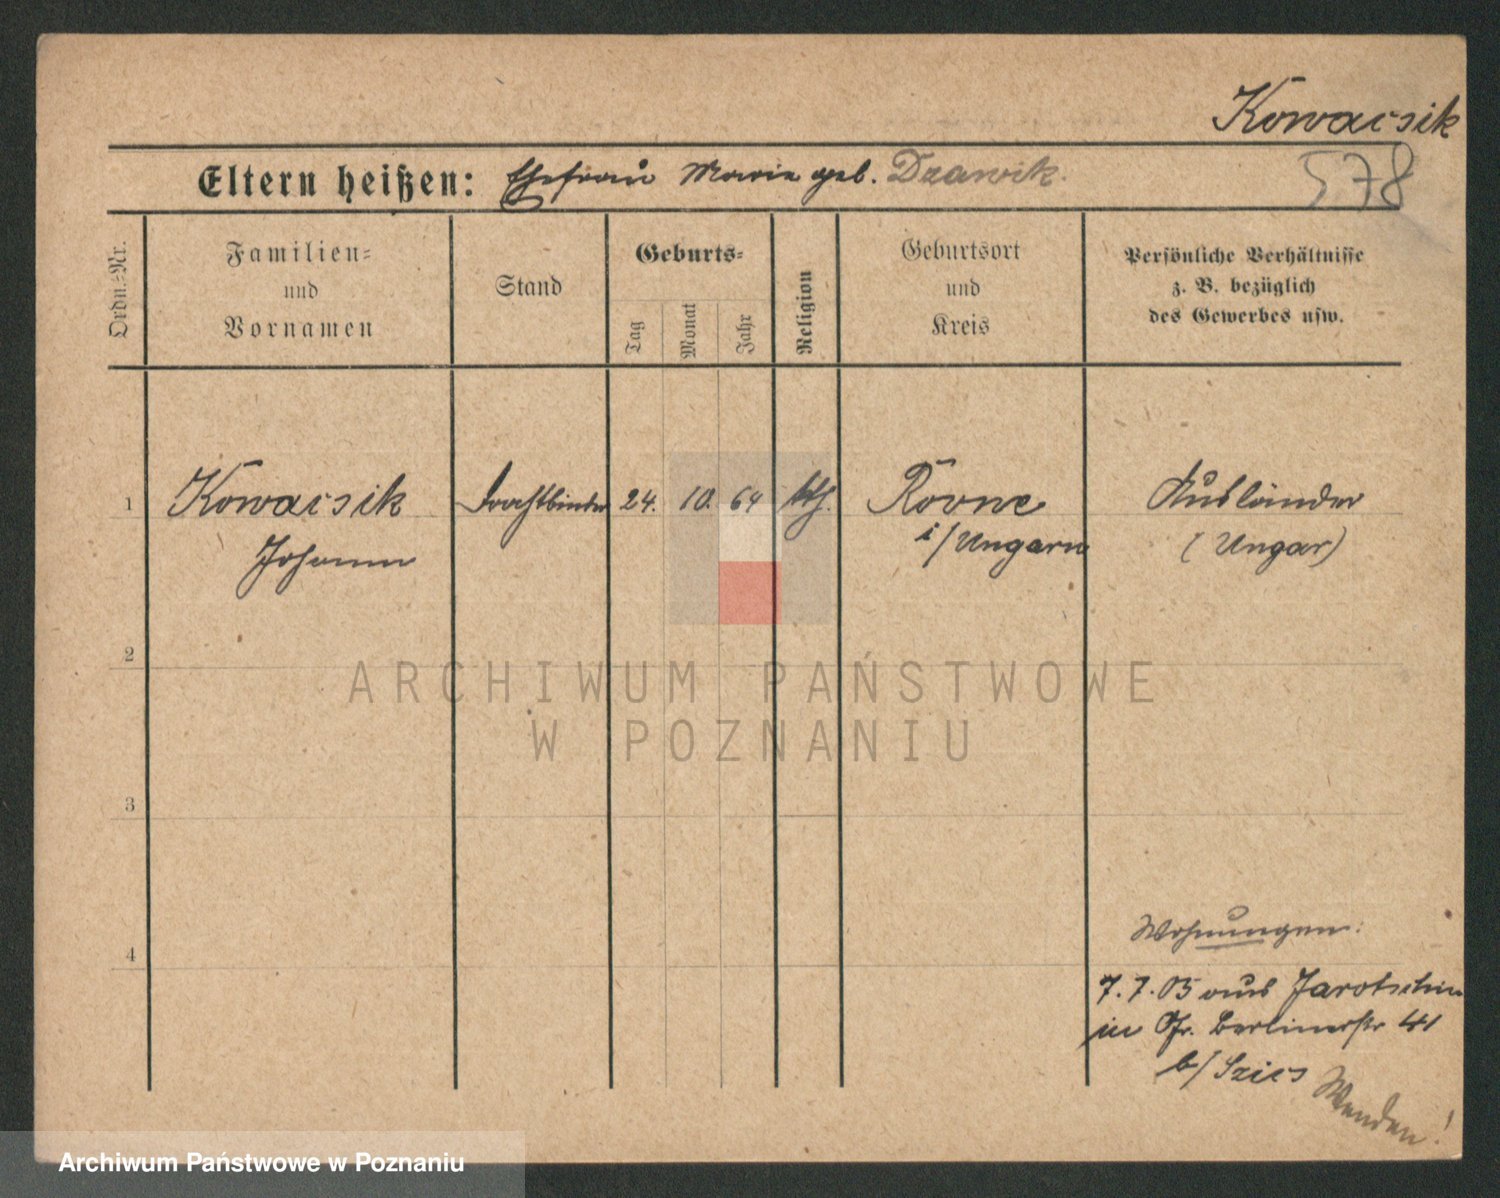 Kowacsik
Eltern heißen: Ehefrau Marie geb. Dzawik.
578
Ordn.=Nr.
Familien=
und
Vornamen
Stand
Geburts=
Tag
Monat
Jahr
Religion
Geburtsort
und
Kreis
Persönliche Verhältnisse
z. B. bezüglich
des Gewerbes usw.
1 Kowacsik Drahtbinder 24. 10. 64 kth. Rovne Ausländer
Johann i/Ungarn (Ungar)
2
ARCHIWUM PAŃSTWOWE
W POZNANIU
3
4
Wohnungen:
7.7.05 aus Jarotschin
in Gr. Berlinerstr 41
b/Szics
Wenden!
Archiwum Państwowe w Poznaniu